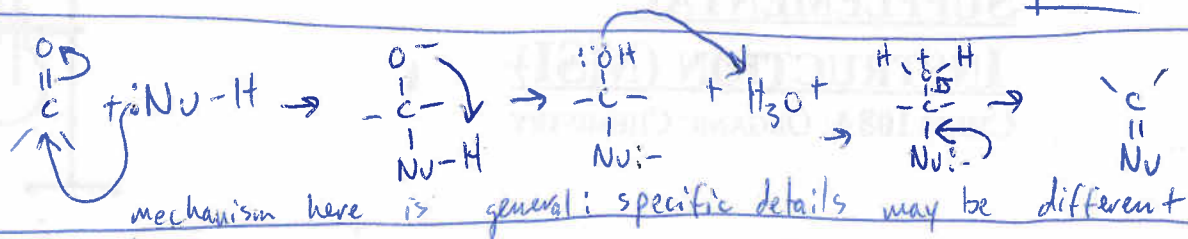 O O⁻ :ÖH H + H
C + :Nu-H → -C- → -C- + H₃O⁺ → -C- → C
Nu-H Nu:- Nu:- Nu
mechanism here is general: specific details may be different